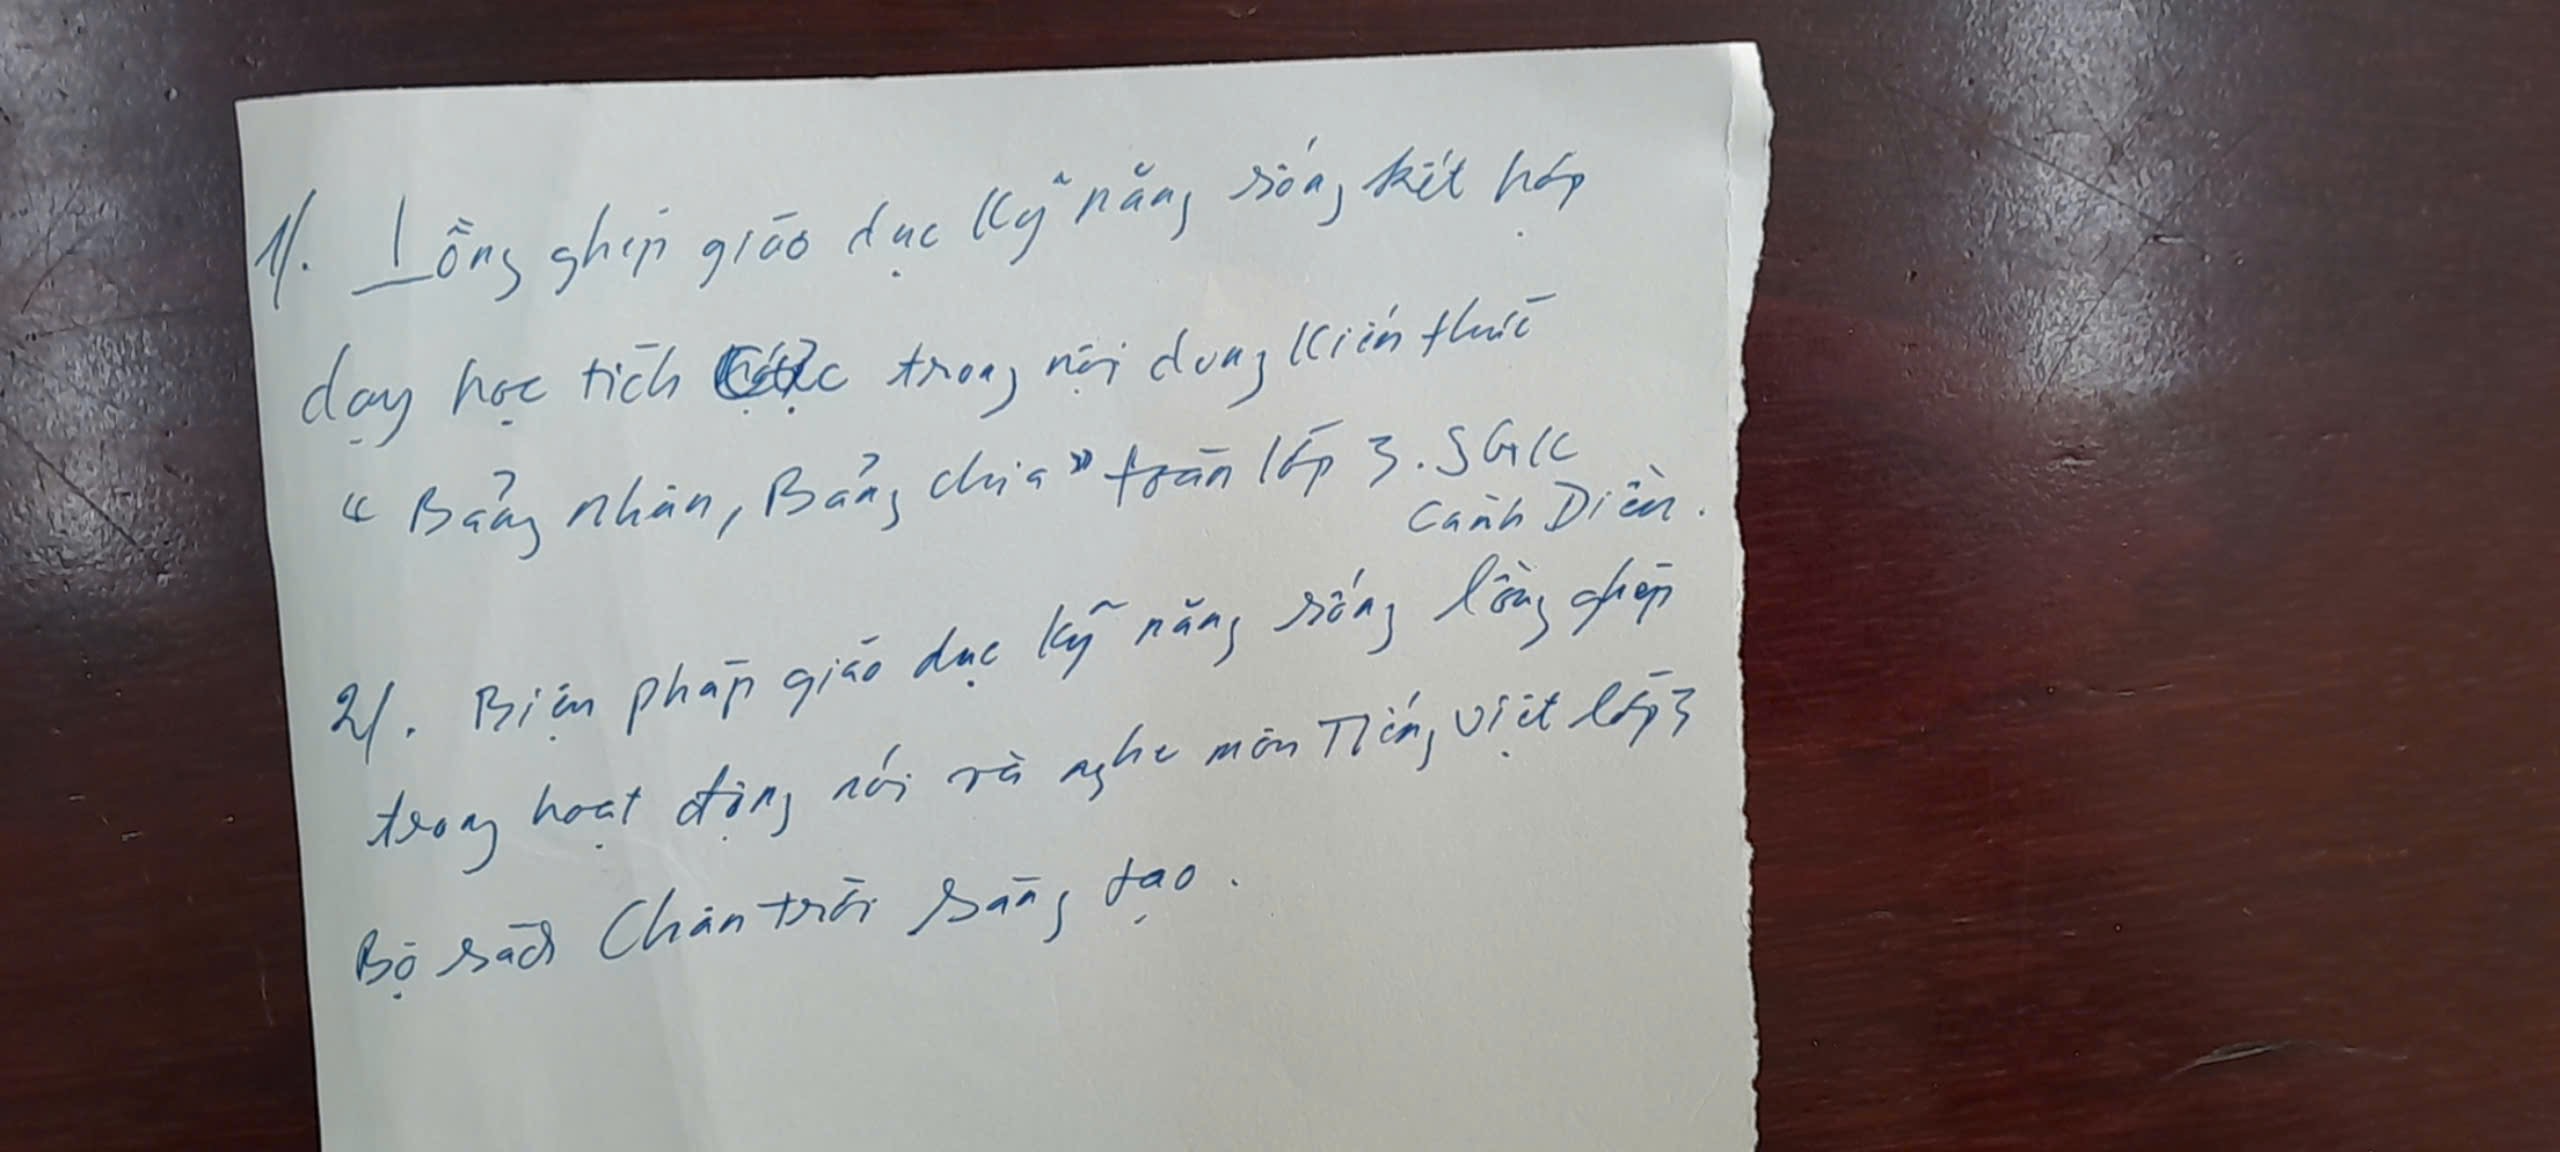 1/. Lồng ghép giáo dục kỹ năng sống kết hợp
dạy học tích cực trong nội dung kiến thức
" Bảng nhân, Bảng chia" toán lớp 3. SGK
Cánh Diều.
2/. Biện pháp giáo dục kỹ năng sống lồng ghép
trong hoạt động nói và nghe môn Tiếng việt lớp 3
Bộ sách Chân trời sáng tạo.